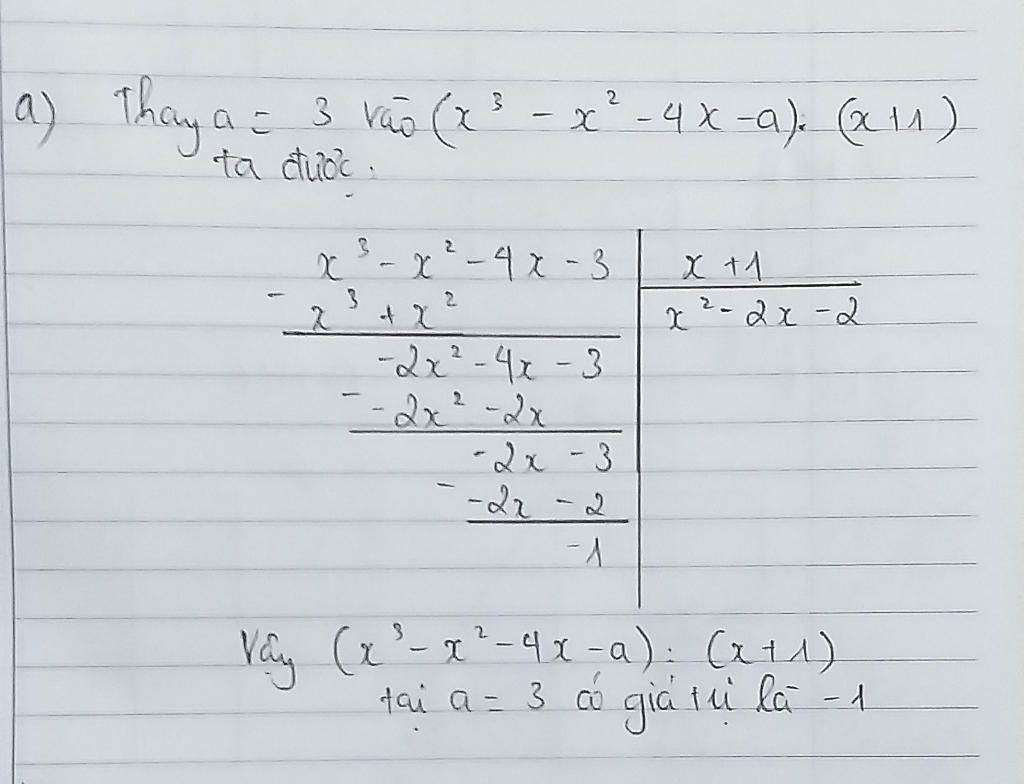 a) Thay a = 3 vào (x³ - x² - 4x - a): (x+1)
ta được.
x³ - x² - 4x - 3 | x + 1
- x³ + x² | x² - 2x - 2
-2x² - 4x - 3
- -2x² - 2x
-2x - 3
- -2x - 2
-1
Vậy (x³ - x² - 4x - a): (x+1)
tại a = 3 có giá trị là -1